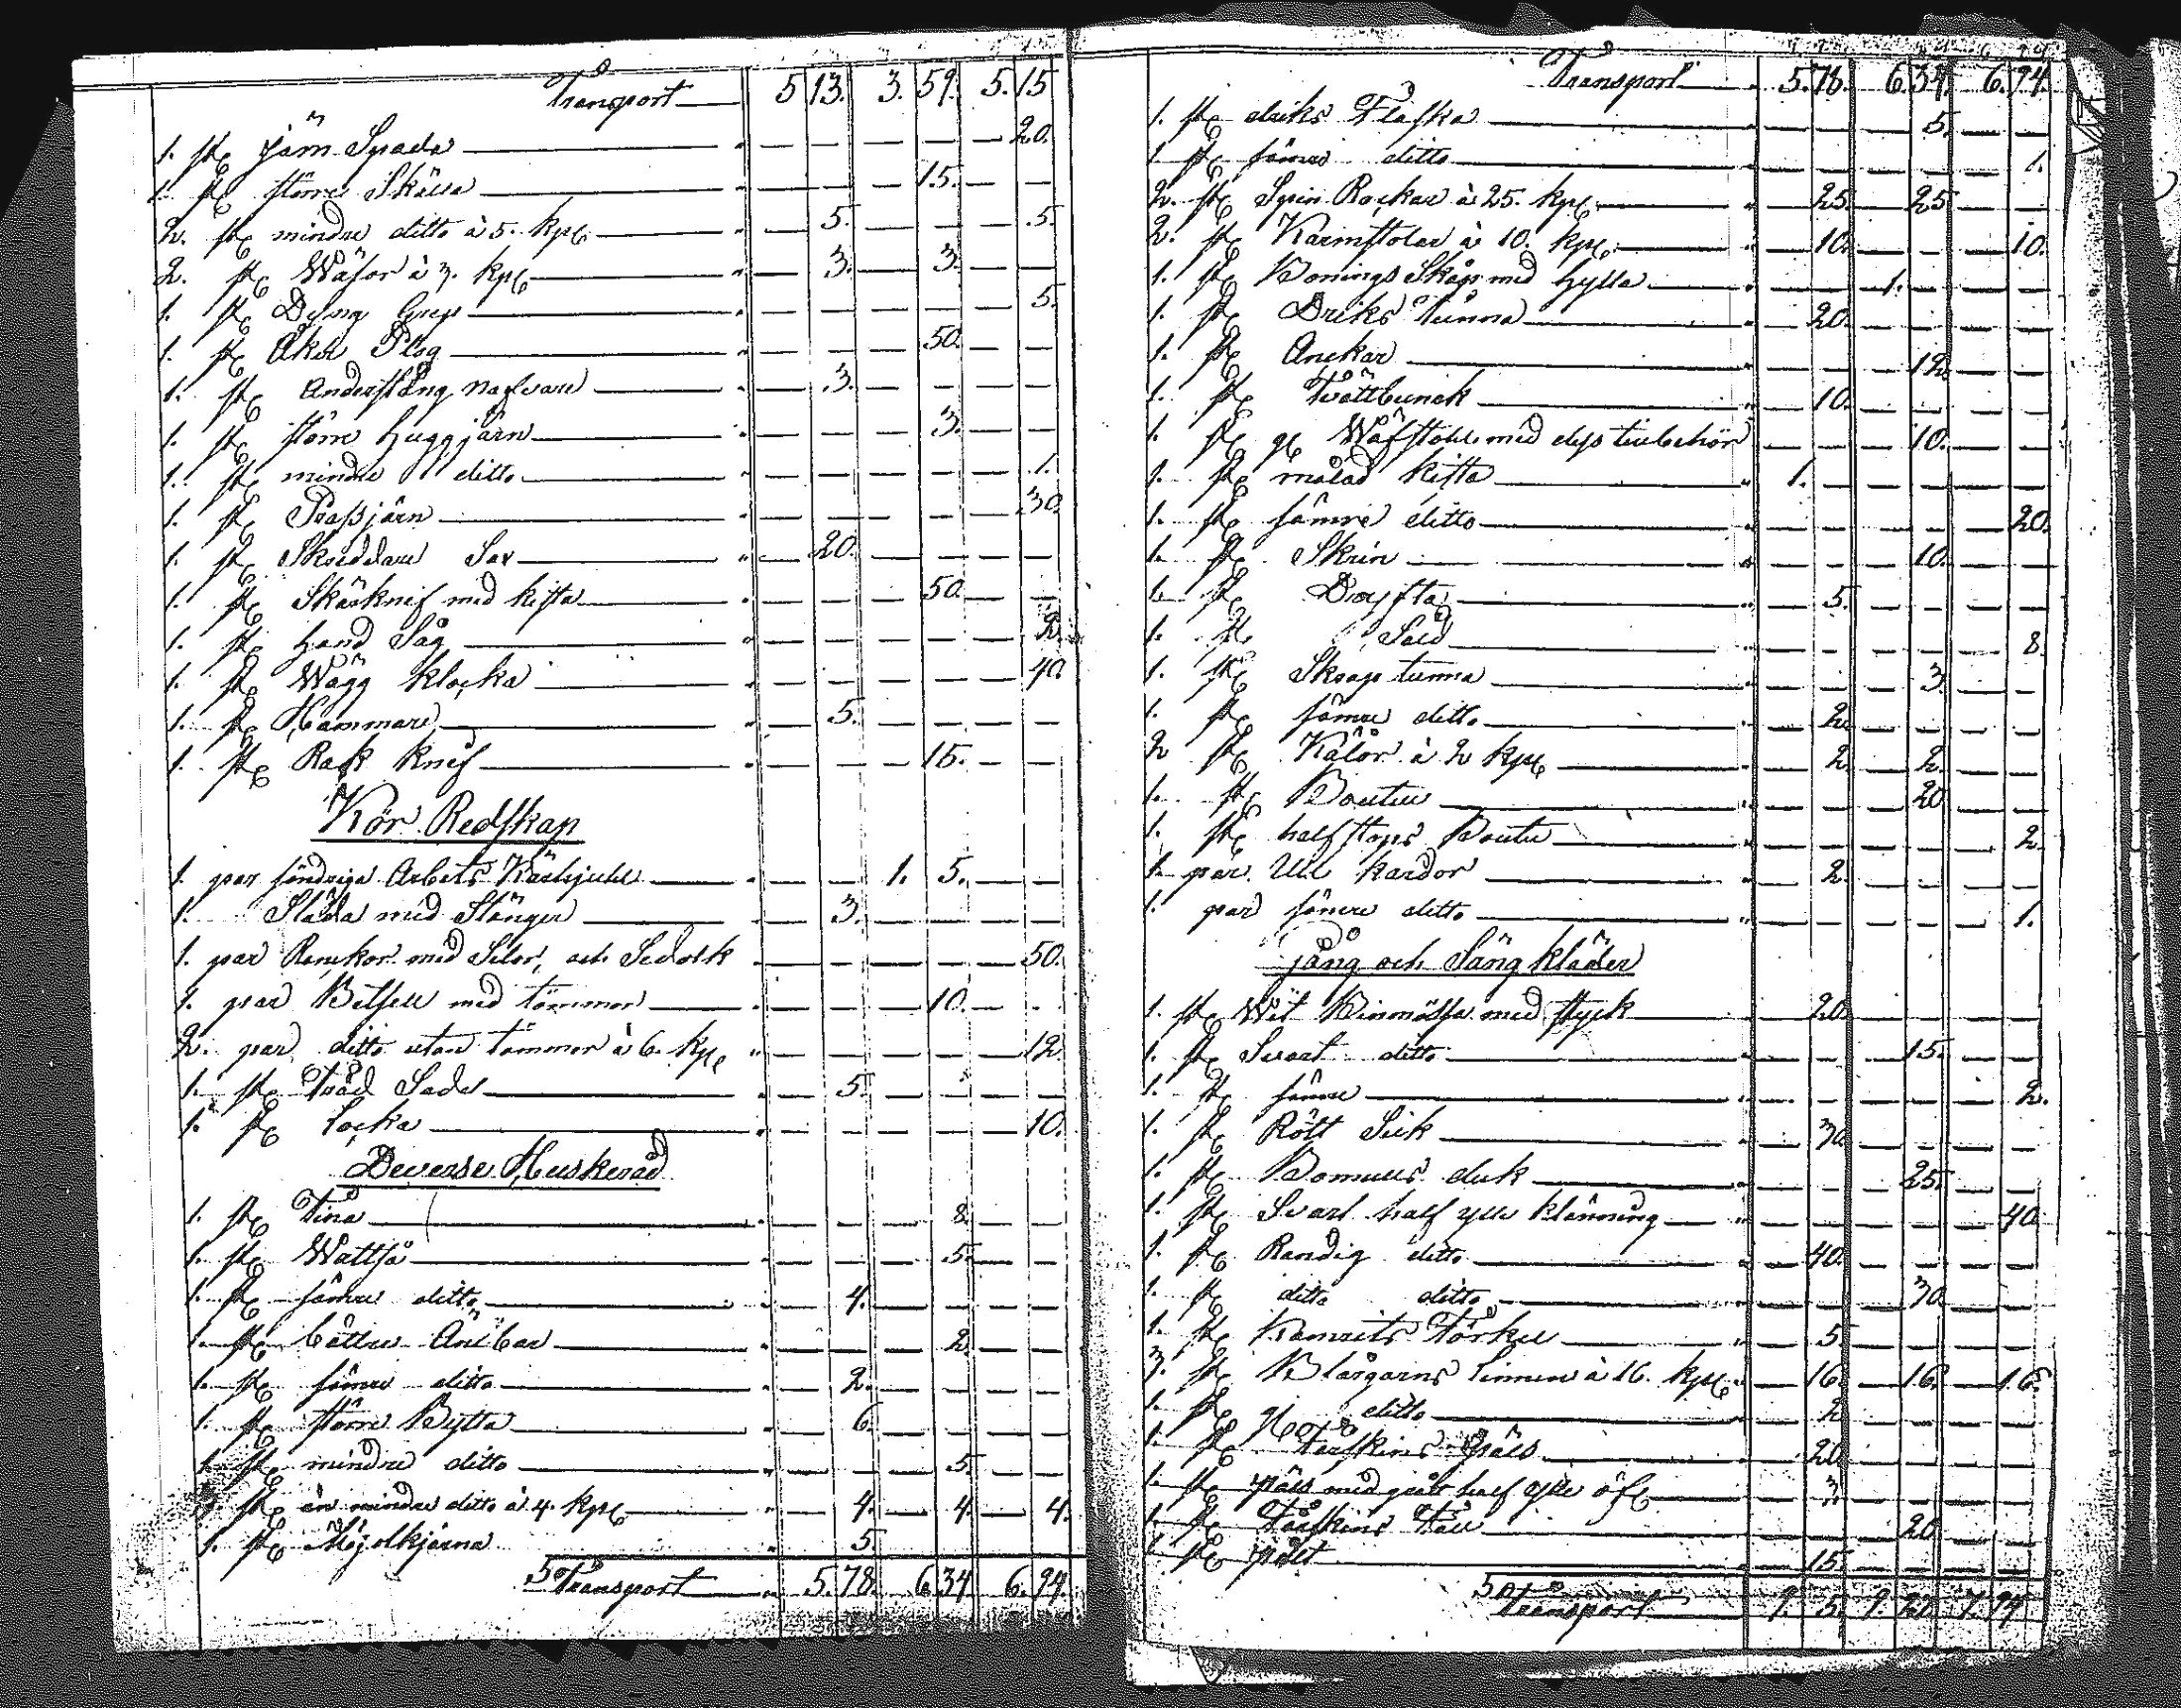 Transport 5 13. 3. 59. 5. 15
1. st järn Spada 20.
1. st större Skålla 15.
2. st mindre ditto à 5. kp 5. 5.
2. st Wåfor à 3. kp 3. 3.
1. st Dyng Grep 5.
1. st Åker Plog 50.
1. st Anderstång nafvare 3.
1. st större huggjärn 3.
1. st mindre ditto 1.
1. st Prassjärn 30.
1. st Skreddare Sax 20.
1. st Skärknif med kista 50.
1. st hand Såg 2.
1. st Wägg klocka 40.
1. st Hammare 5.
1. st Rak knif 15.
Kör Redskap
1. par söndriga Arbets Kärhjuhl 1. 5.
1. Släda med Stänger 3.
1. par Ranckor med Selor, och Sedolk 50.
1. par Bettsell med tömmor 10.
2. par ditto utan tömmor à 6. kp 12.
1. st Träd Sadel 5.
1. st Locka 10.
Deverse Huskeråd
1. st Tina 8.
1. st Wattså 5.
1. st sämre ditto 4.
1. st bättre Ämbar 2.
1. st sämre ditto 2.
1. st större Bytta 6.
1. st mindre ditto 5.
3. st än mindre ditto à 4. kp 4. 4. 4.
1. st Mjölkjärna 5.
Transport 5. 78. 6. 34 6. 94
Transport 5. 78. 6. 34. 6. 94.
1. st driks Flaska 5.
1. st sämre ditto 1.
2. st Spin Rockar à 25. kp 25. 25
2. st Karmstolar à 10. kp 10. 10.
1. st Bonings Skåp med hylla 1.
1. st Driks tunna 20.
1. st Anckar 12.
1. st Tvättbunck 10.
1. st gl Wäfstohl med dess tillbehör 10.
1. st målad kista 1.
1. st sämre ditto 20.
1. st Skrin 10.
1. st Dryfta 5.
1. st Såld 8.
1. st Skrap tunna 3.
1. st sämre ditto 2.
2 st Kålor à 2 kp 2. 2.
1. st Boutell 20
1. st half stops Boutell 2.
1. par Ull kardor 2.
1. par sämre ditto 1.
gång och Säng kläder
1. st Wit Binmössa med styck 20.
1. st Svart ditto 15.
1. st sämre 2.
1. st Rött Silk 30
1. st Bomulls duk 25.
1. st Svart half ylle klänning 40
1. st Randig ditto 40.
1. st ditto ditto 30
1. st Kamrits Törkle 5.
3. st Blårgarns Linnen à 16. kp 16. 16. 16.
1. st gl ditto 2
1. st fårskins päls 20
1. st päls med grått half ylle öf 3.
1. st Fårskins Fäll 20
1. st pält 15.
Transport 9. 5. 9. 20 7. 94